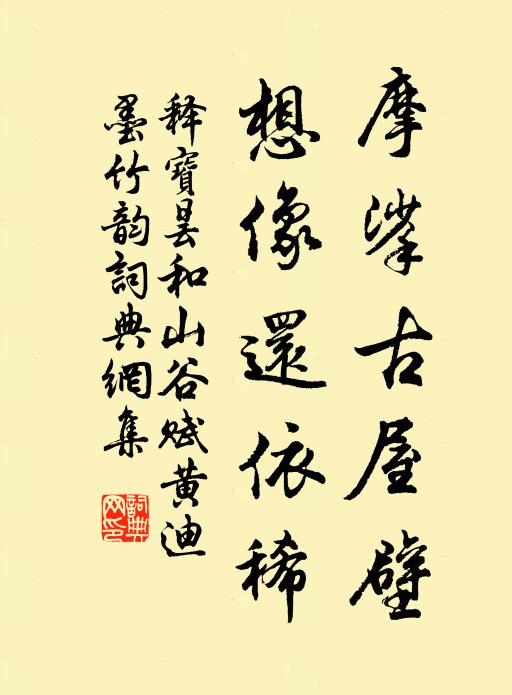 摩挲古屋壁
想像還依稀
释寶昙和山谷赋黄迪
墨竹韵詞典網集
詞典網印